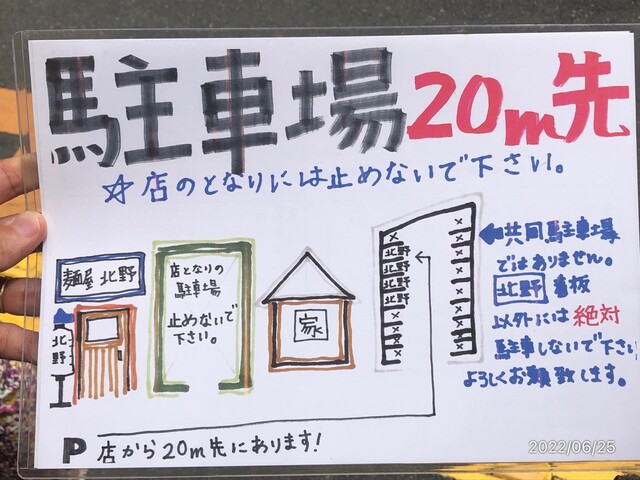 駐車場20m先
☆店のとなりには止めないで下さい。
麺屋 北野
北野
店となりの
駐車場
止めないで
下さい。
家
×
北野
北野
北野
北野
×
×
×
×
×
×
×
×
×
×
×
×
←共同駐車場
ではありません。
北野 看板
以外には絶対
駐車しないで下さい
よろしくお願致します。
P 店から20m先にあります!
2022/06/25